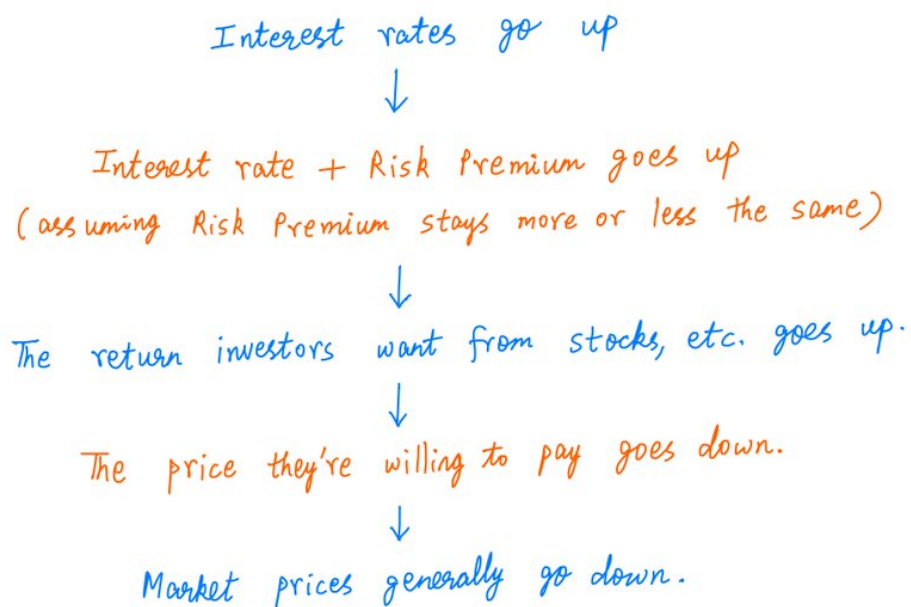 Interest rates go up
↓
Interest rate + Risk Premium goes up
(assuming Risk Premium stays more or less the same)
↓
The return investors want from stocks, etc. goes up.
↓
The price they're willing to pay goes down.
↓
Market prices generally go down.